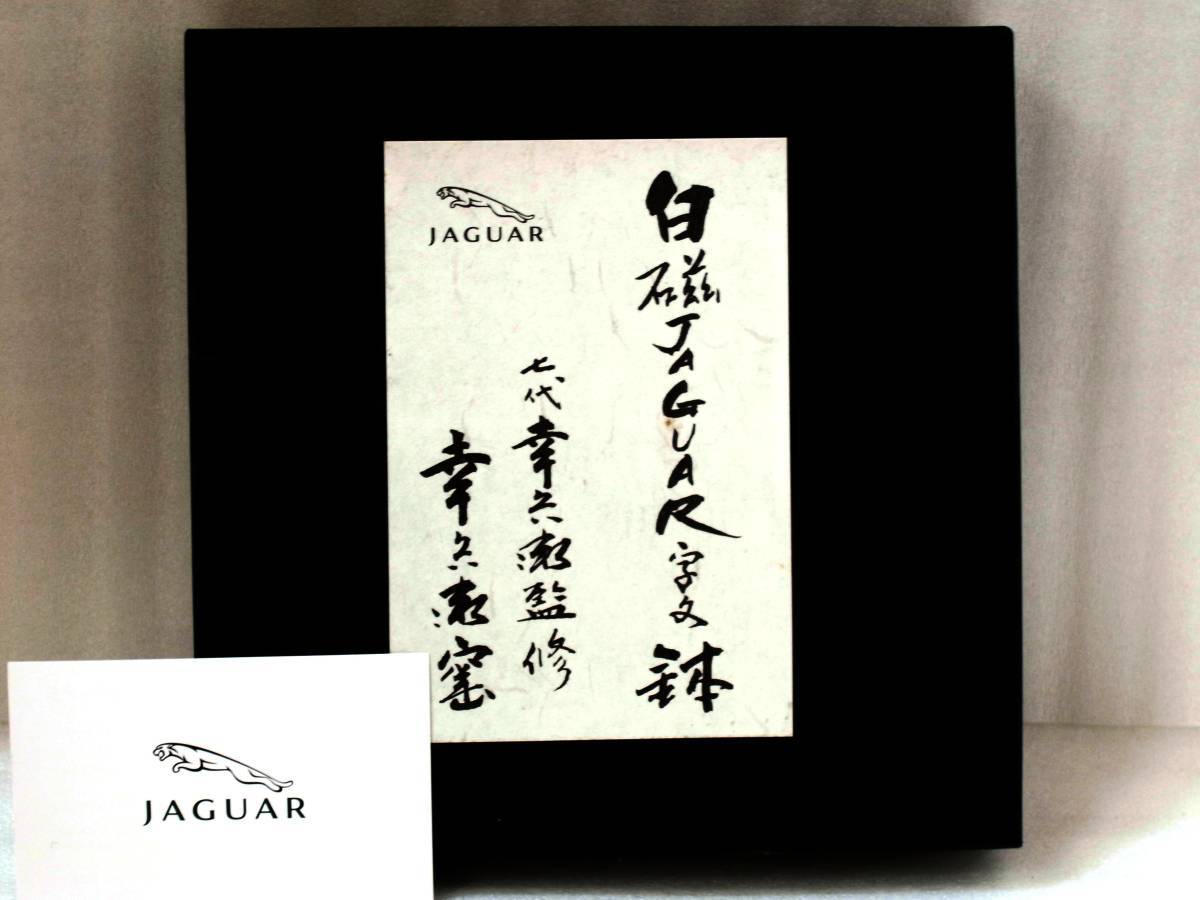 白磁JAGUAR字文鉢
七代幸兵衛監修
幸兵衛窯
JAGUAR
JAGUAR